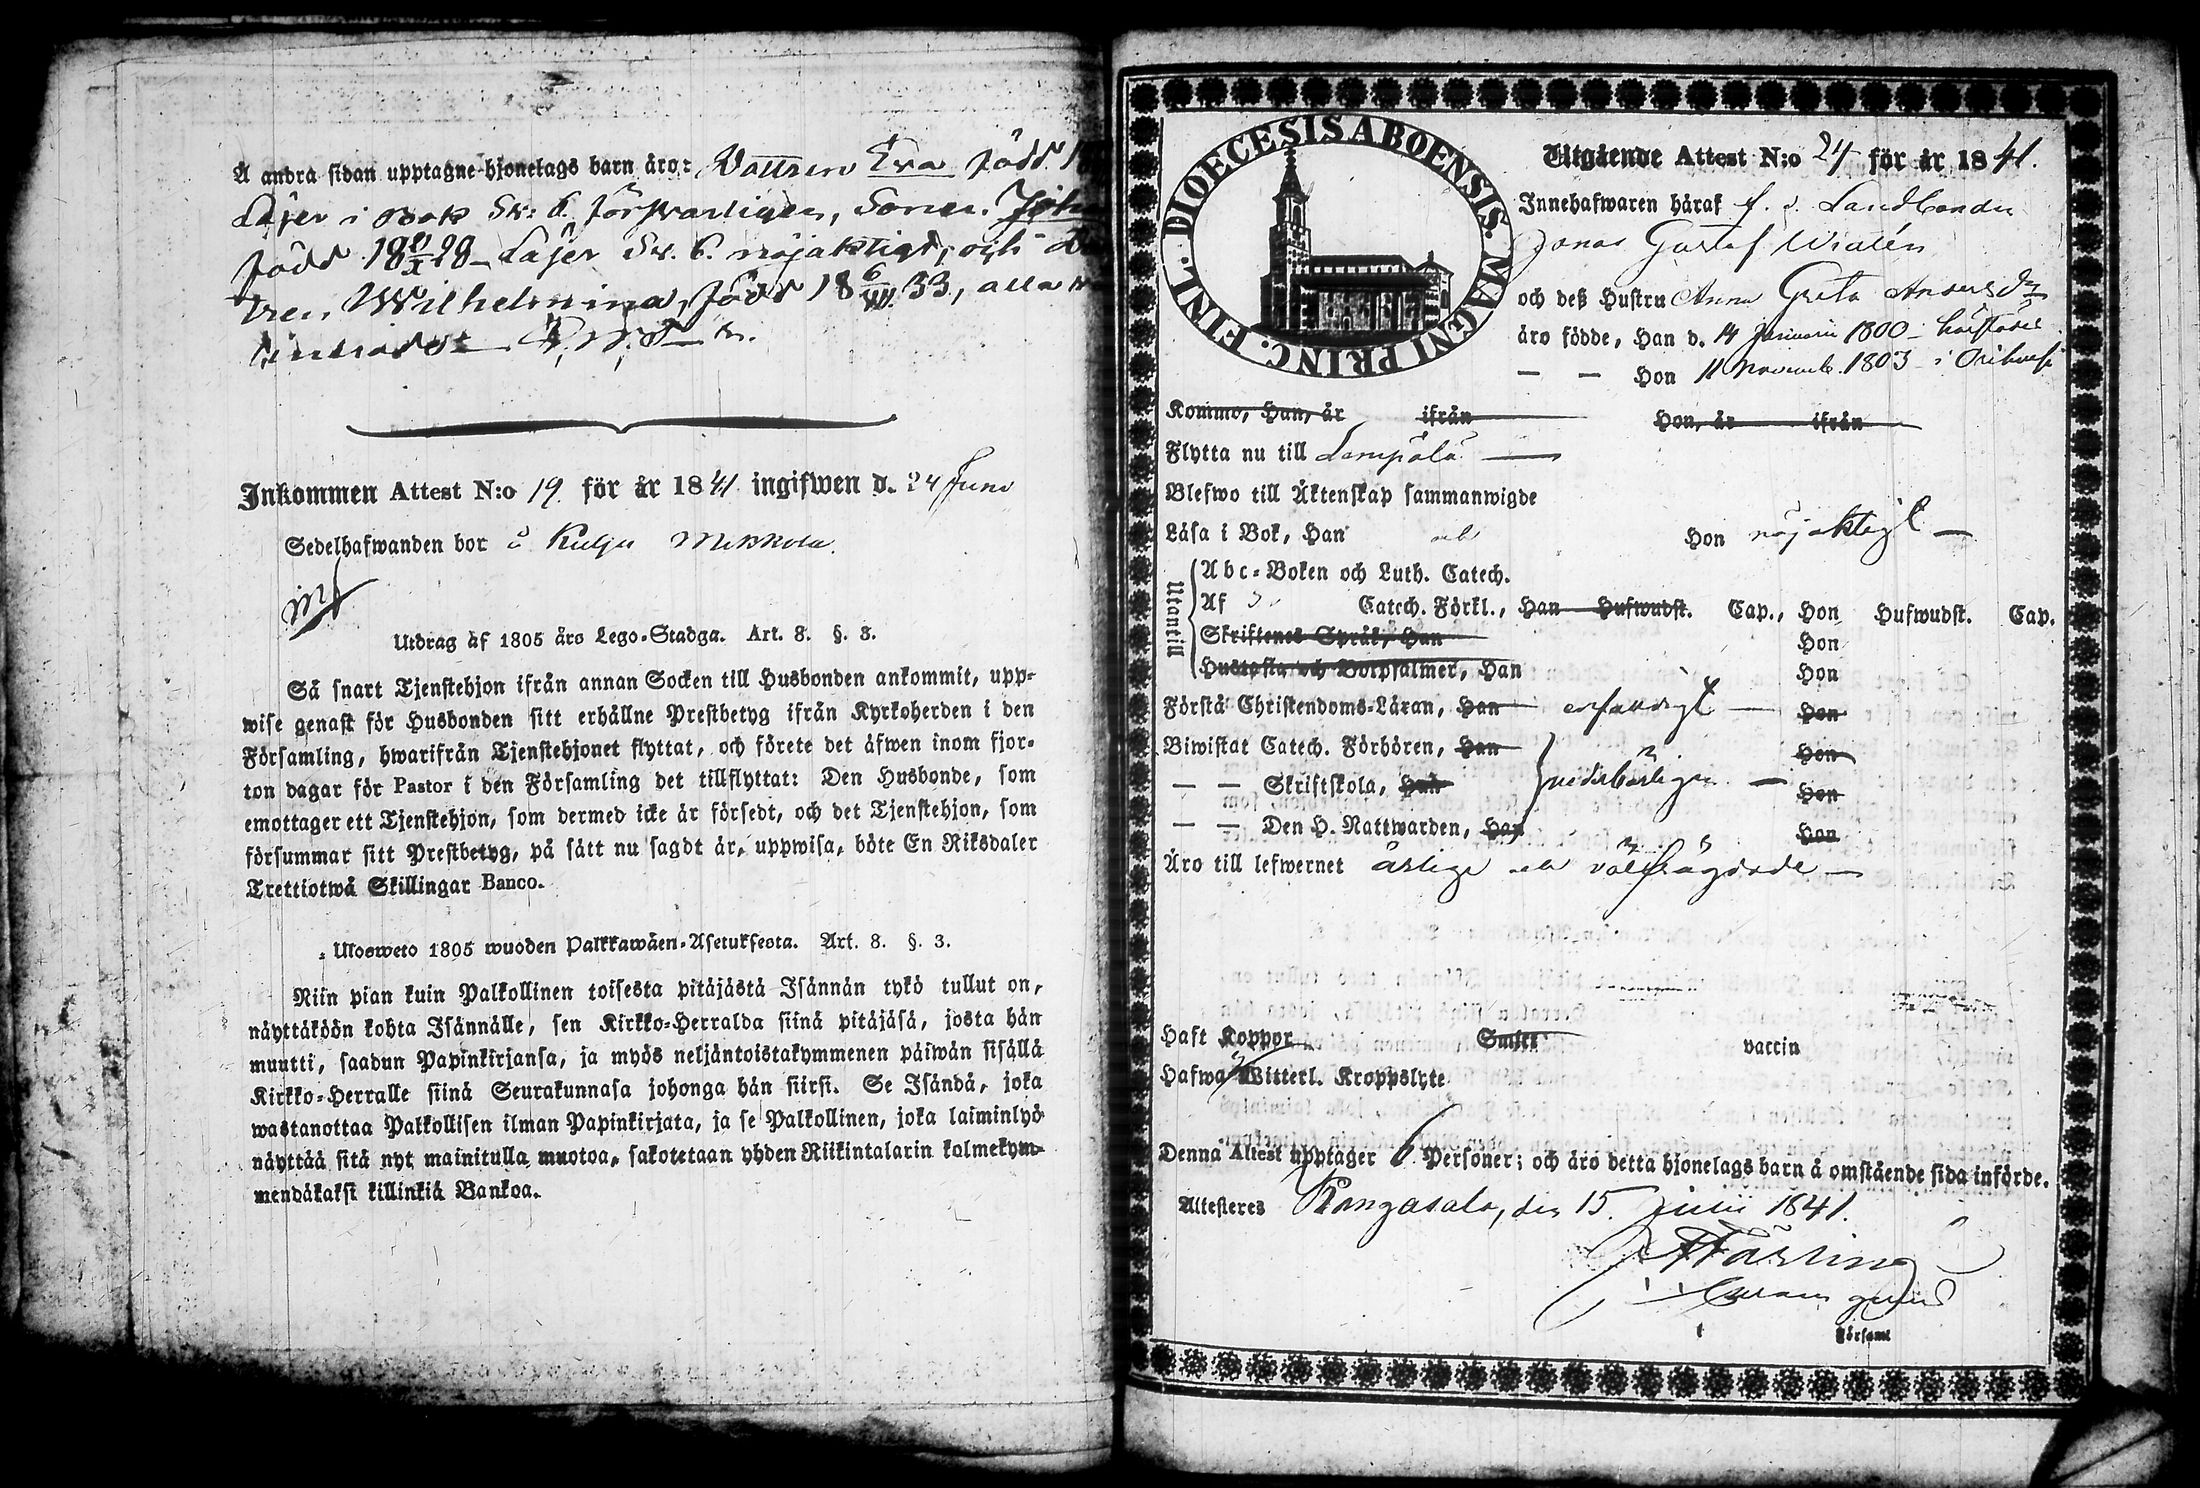 Å andra sidan upptagne hjonelags barn äro: Dottren Eva född
Läser i Bok Sv. B. försvarligen, Sonen
född 18 28 Läser Sv. B. nöjaktigt, och
tren Wilhelmina, född 18 6 33, alla
Inkommen Attest N:o 19 för år 1841 ingifwen d. 24 Juni
Sedelhafwanden bor å Kulju Mikkola.
Utdrag af 1805 års Lego-Stadga. Art. 8. §. 3.
Så snart Tjenstehjon ifrån annan Socken till Husbonden ankommit, upp-
wise genast för Husbonden sitt erhållne Prestbetyg ifrån Kyrkoherden i den
Församling, hwarifrån Tjenstehjonet flyttat, och förete det äfwen inom fjor-
ton dagar för Pastor i den Församling det tillflyttat: Den Husbonde, som
emottager ett Tjenstehjon, som dermed icke är försedt, och det Tjenstehjon, som
försummar sitt Prestbetyg, på sätt nu sagdt är, uppwisa, böte En Riksdaler
Trettiotwå Skillingar Banco.
Ulosweto 1805 wuoden Palkkawäen-Asetuksesta. Art. 8. §. 3.
Niin pian kuin Palkollinen toisesta pitäjästä Isännän tykö tullut on,
näyttäköön kohta Isännälle, sen Kirkko-Herralda siinä pitäjäsä, josta hän
muutti, saadun Papinkirjansa, ja myös neljäntoistakymmenen päiwän sisällä
Kirkko-Herralle siinä Seurakunnasa johonga hän siirsi. Se Isändä, joka
wastanottaa Palkollisen ilman Papinkirjata, ja se Palkollinen, joka laiminlyö
näyttää sitä nyt mainitulla muotoa, sakotetaan yhden Riikintalarin kolmekym-
mendäkaksi killinkiä Bankoa.
DIOECESIS ABOENSIS. MAGNI PRINC. FINL.
Utgående Attest N:o 24 för år 1841.
Innehafwaren häraf f. d. Landbonden
Jonas Gustaf Widlén
och deß Hustru Anna Greta Andersdr
äro födde, Han d. 14 Januarii 1800 härstädes
— — Hon 11 Novemb. 1803 i Orihvesi
Kommo, Han, år ifrån Hon, år ifrån
Flytta nu till Lempälä —
Blefwo till Äktenskap sammanwigde
Läsa i Bok, Han och Hon nöjaktigt —
Utantill
Abc-Boken och Luth. Catech.
Af Catech. Förkl., Han Hufwudst. Cap., Hon Hufwudst. Cap.
Skriftenes Språk, Han Hon
Hustafla och Botpsalmer, Han Hon
Förstå Christendoms-Läran, Han enfaldigt — Hon
Biwistat Catech. Förhören, Han Hon
— — Skriftskola, Han wederbörligen — Hon
— — Den H. Nattwarden, Han Hon
Äro till lefwernet ärlige och välfrägdade —
Haft Koppor Smitt vaccin
Hafwa Witterl. Kroppslyte
Denna Attest upptager 6 Personer; och äro detta hjonelags barn å omstående sida införde.
Attesteres Kangasala, den 15 Junii 1841.
Församl